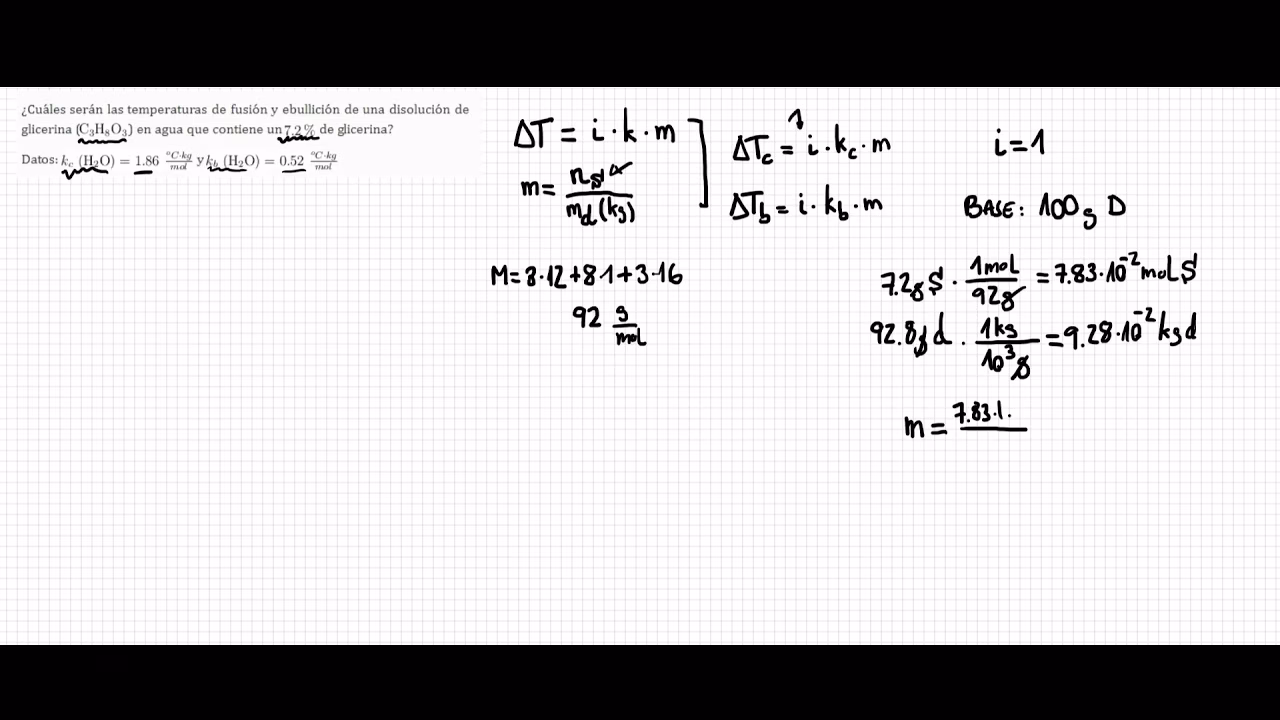 ¿Cuáles serán las temperaturas de fusión y ebullición de una disolución de
glicerina (C₃H₈O₃) en agua que contiene un 7.2 % de glicerina?
Datos: k_c (H₂O) = 1.86 °C·kg/mol y k_b (H₂O) = 0.52 °C·kg/mol
ΔT = i · k · m
m = n_s / m_d (kg)
ΔT_c = i · k_c · m
ΔT_b = i · k_b · m
i = 1
BASE: 100 g D
M = 3·12 + 8·1 + 3·16
92 g/mol
7.2 g S · 1 mol / 92 g = 7.83·10⁻² mol S
92.8 g d · 1 kg / 10³ g = 9.28·10⁻² kg d
m = 7.83·1.